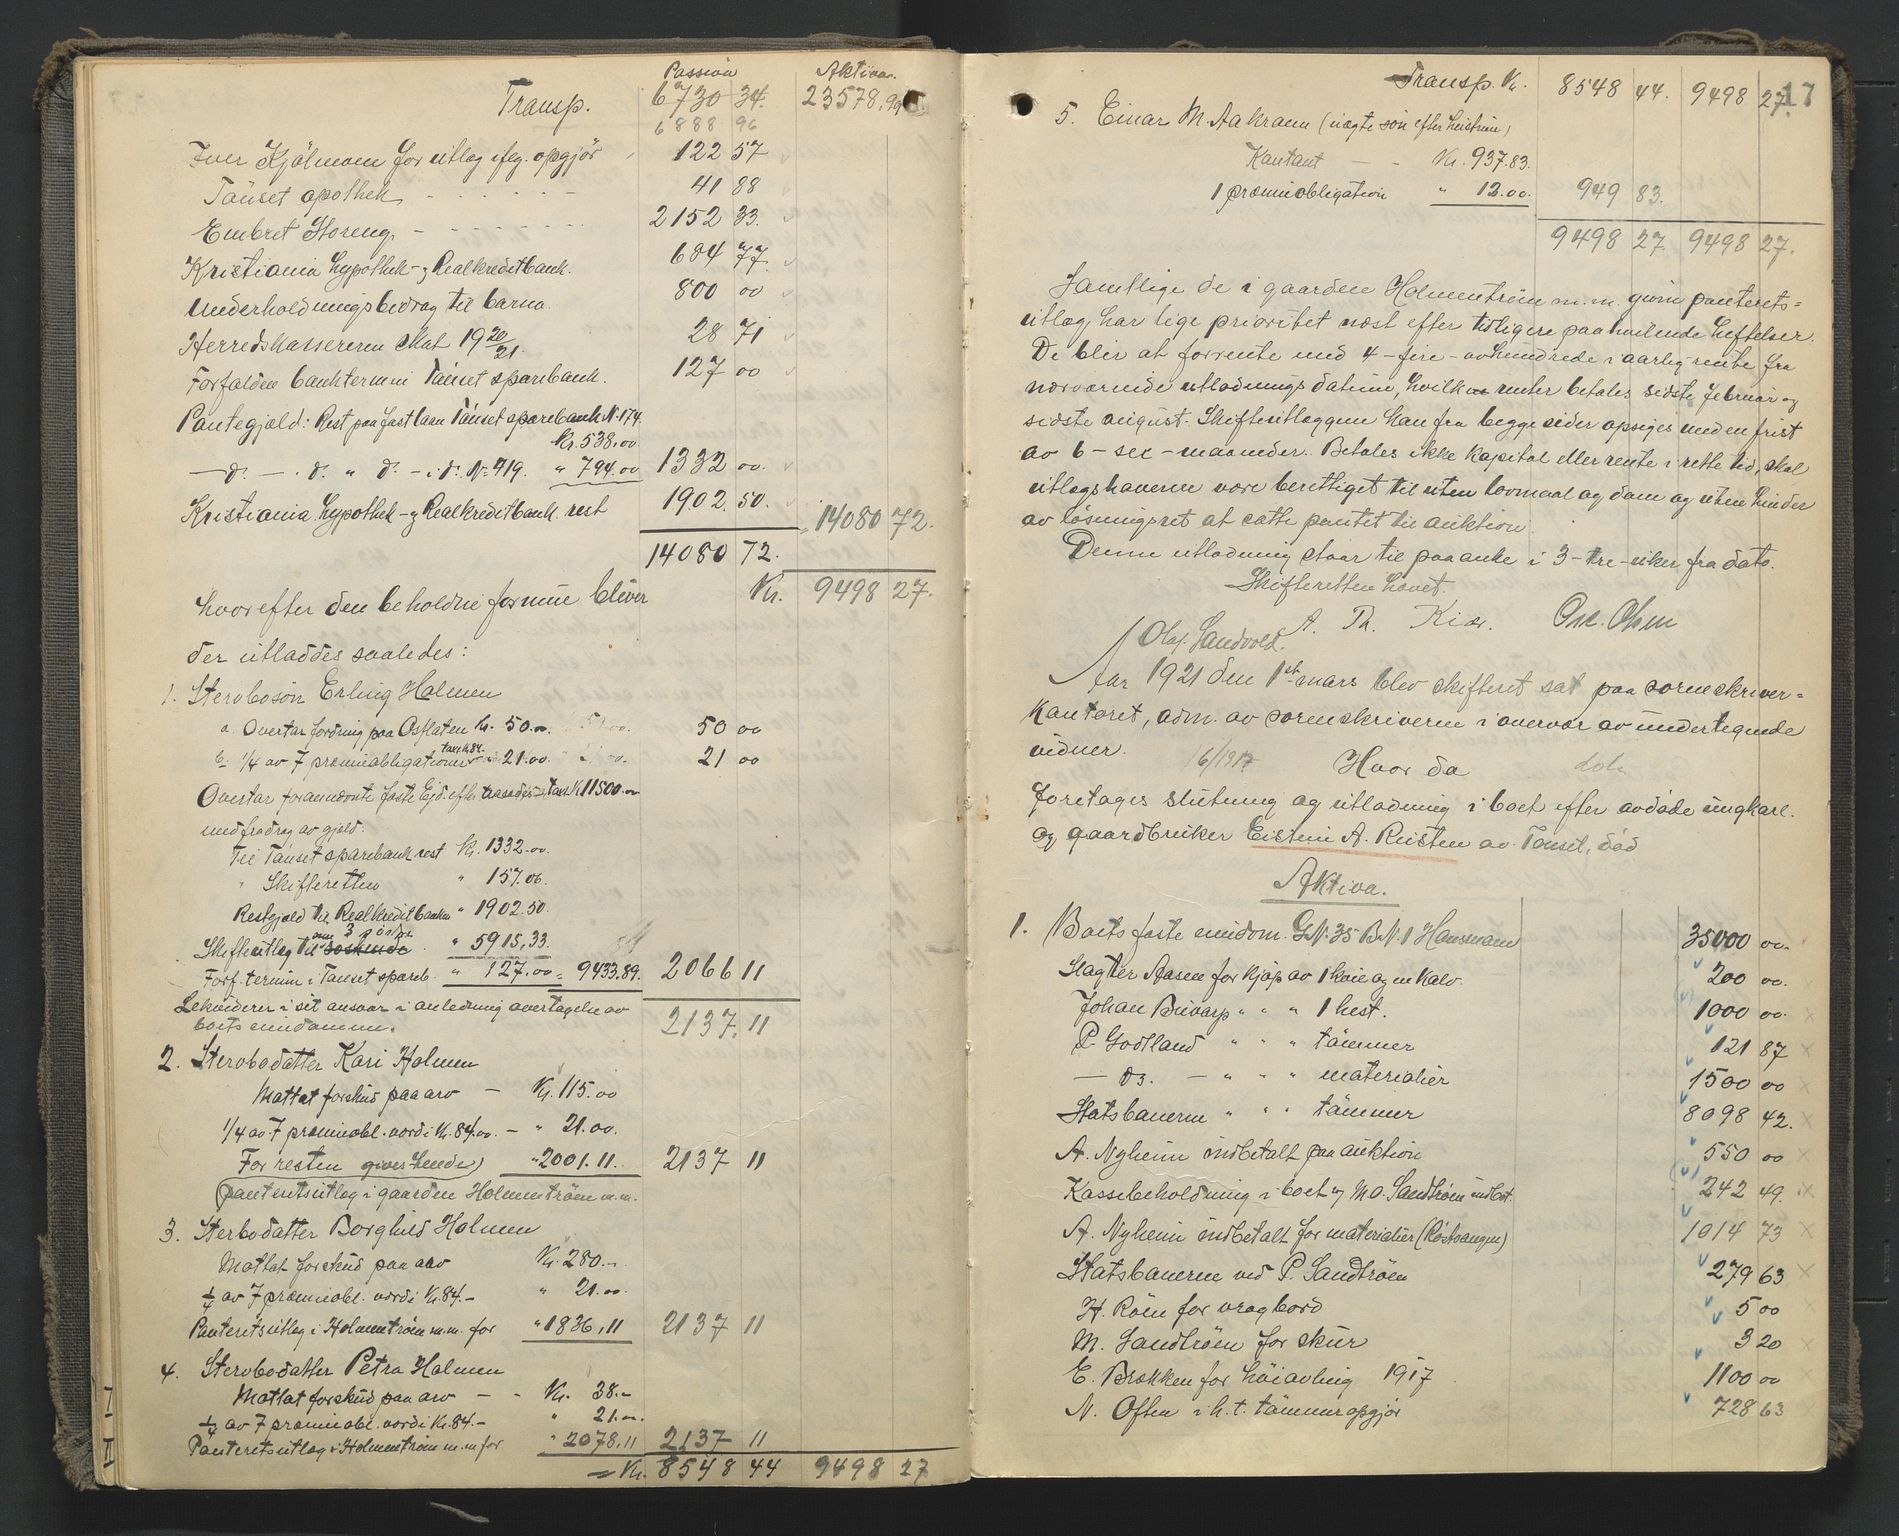 Passiva Aktiva.
Transp. 6730 34. 23578,99
6888 96
Iver Kjölmoen for utlæg ifg. opgjör 122 57
Tönset apothek 41 88
Embret Storeng 2152 33.
Kristiania Hypothek- og Realkreditbank. 684 77
Underholdningsbidrag til barna. 800 00
Herredskassereren skat 1920/21. 28 71
Forfalden banktermin Tönset sparebank. 127 00
Pantegjæld: Rest paa fast laan Tönset sparebank N. 174.
Kr. 538,00
— d. — . d. " d. - i d. No 419. " 794.00 1332 00.
Kristiania Hypothek- og Realkreditbank rest 1902. 50. 14080 72.
14080 72.
hvorefter den beholdne formue bliver Kr. 9498 27.
der utloddes saaledes:
1. Stervbosön Erling Holmen
a. Overtar fordring paa Osflaten Kr. 50.00. 50 00
b. 1/4 av 7 præmieobligationer takst 84. 21.00 21 00
Overtar forannævnte faste Ejd. efter takst K 11500.00
med fradrag av gjæld:
Til Tönset sparebank rest Kr. 1332.00.
" Skifteretten " 157.06.
Restgjæld til Realkreditbanken " 1902.50.
Skifteutlæg til söskende " 5915,33.
Forf. termin i Tönset spareb. " 127.00 = 9433.89. 2066 11
Lekviderer i sit ansvar i anledning overtagelse av
boets eiendomme. 2137. 11
2. Stervbodatter Kari Holmen
Mottat forskud paa arv — Kr. 115.00
1/4 av 7 præmieobl. værdi Kr. 84.00. — " 21.00.
For resten gives hende " 2001.11. 2137 11
panteretsutlæg i gaarden Holmentröen m.m.
3. Stervbodatter Borghild Holmen
Mottat forskud paa arv Kr. 280.-
1/4 av 7 præmieobl. værdi Kr. 84.- " 21.00.
Panteretsutlæg i Holmentröen m.m. for " 1836,11 2137 11
4. Stervbodatter Petra Holmen
Mottat forskud paa arv - - Kr. 38.-
1/4 av 7 præmieobl. værdi Kr. 84.- " 21.00.
Panteretsutlæg i Holmentröen m.m for " 2078,11 2137 11
= Kr. 8548 44 9498 27
I
II
17
Transp. Kr. 8548 44. 9498 27.
5. Einar M. Aakrann (uegte sön efter hustrun)
Kontant — - Kr. 937.83.
1 præmieobligation " 12.00. 949 83.
9498 27 9498 27.
Samtlige de i gaarden Holmentröen m.m. givne panterets=
utlæg har lige prioritet næst efter tidligere paahvilende heftelser.
De blir at forrente med 4 - fire - av hundrede i aarlig rente fra
nærværende utlodnings datum, hvilke renter betales sidste februar og
sidste august. Skifteutlæggene kan fra begge sider opsiges med en frist
av 6 - sex - maaneder. Betales ikke kapital eller rente i rette tid, skal
utlægshaverne være berettiget til uten lovmaal og dom og uten hinder
av lösningsret at sætte pantet til auktion.
Denne utlodning staar til paaanke i 3 - tre - uker fra dato.
Skifteretten hævet.
A. Th. Kiær. Osc. Olsen
Olaf Sandvold.
Aar 1921 den 1ste mars blev skifteret sat paa sorenskriver=
kontoret, adm. av sorenskriveren i overvær av undertegnede
vidner. 16/1917 Hvor da
foretages slutning og utlodning i boet efter avdöde ungkarl
og gaardbruker Eistein A. Rusten av Tönset, död
Aktiva.
1. Boets faste eiendom. G.N. 35 B.N. 1 Hansmoen 35000 00.
Slagter Aasen for kjöp av 1 kvie og en kalv. 200 00.
Johan Buvarp " " " 1 hest. 1000 00.
P. Godtland " " " tömmer 121 87
— Do. — " " " materialier 1500 00
Statsbanerne " " " tömmer 8098 42.
A. Nyheim indbetalt paa auktion 550 00
Kassebeholdning i boet og M.O. Sandtröen indbet. 242 49.
A. Nyheim indbetalt for materialier (Röstvangen) 1014 73
Statsbanerne ved P. Sandtröen 279 63
H. Röen for vragbord 5 00
M. Sandtröen for skur 3 20
E. Brækken for höiavling 1917 1100 00
N. Often i h.t. tömmeropgjör 728 63